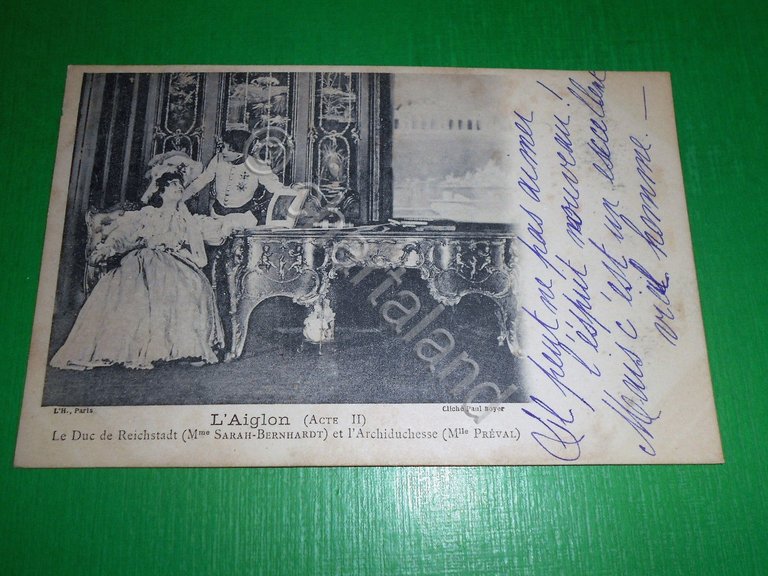 L'H., Paris
Cliché Paul Boyer
L'Aiglon (ACTE II)
Le Duc de Reichstadt (Mme SARAH-BERNHARDT) et l'Archiduchesse (Mlle PRÉVAL)
Il peut ne pas aimer
l'esprit nouveau!
Mais c'est un excellent
vieil homme. —